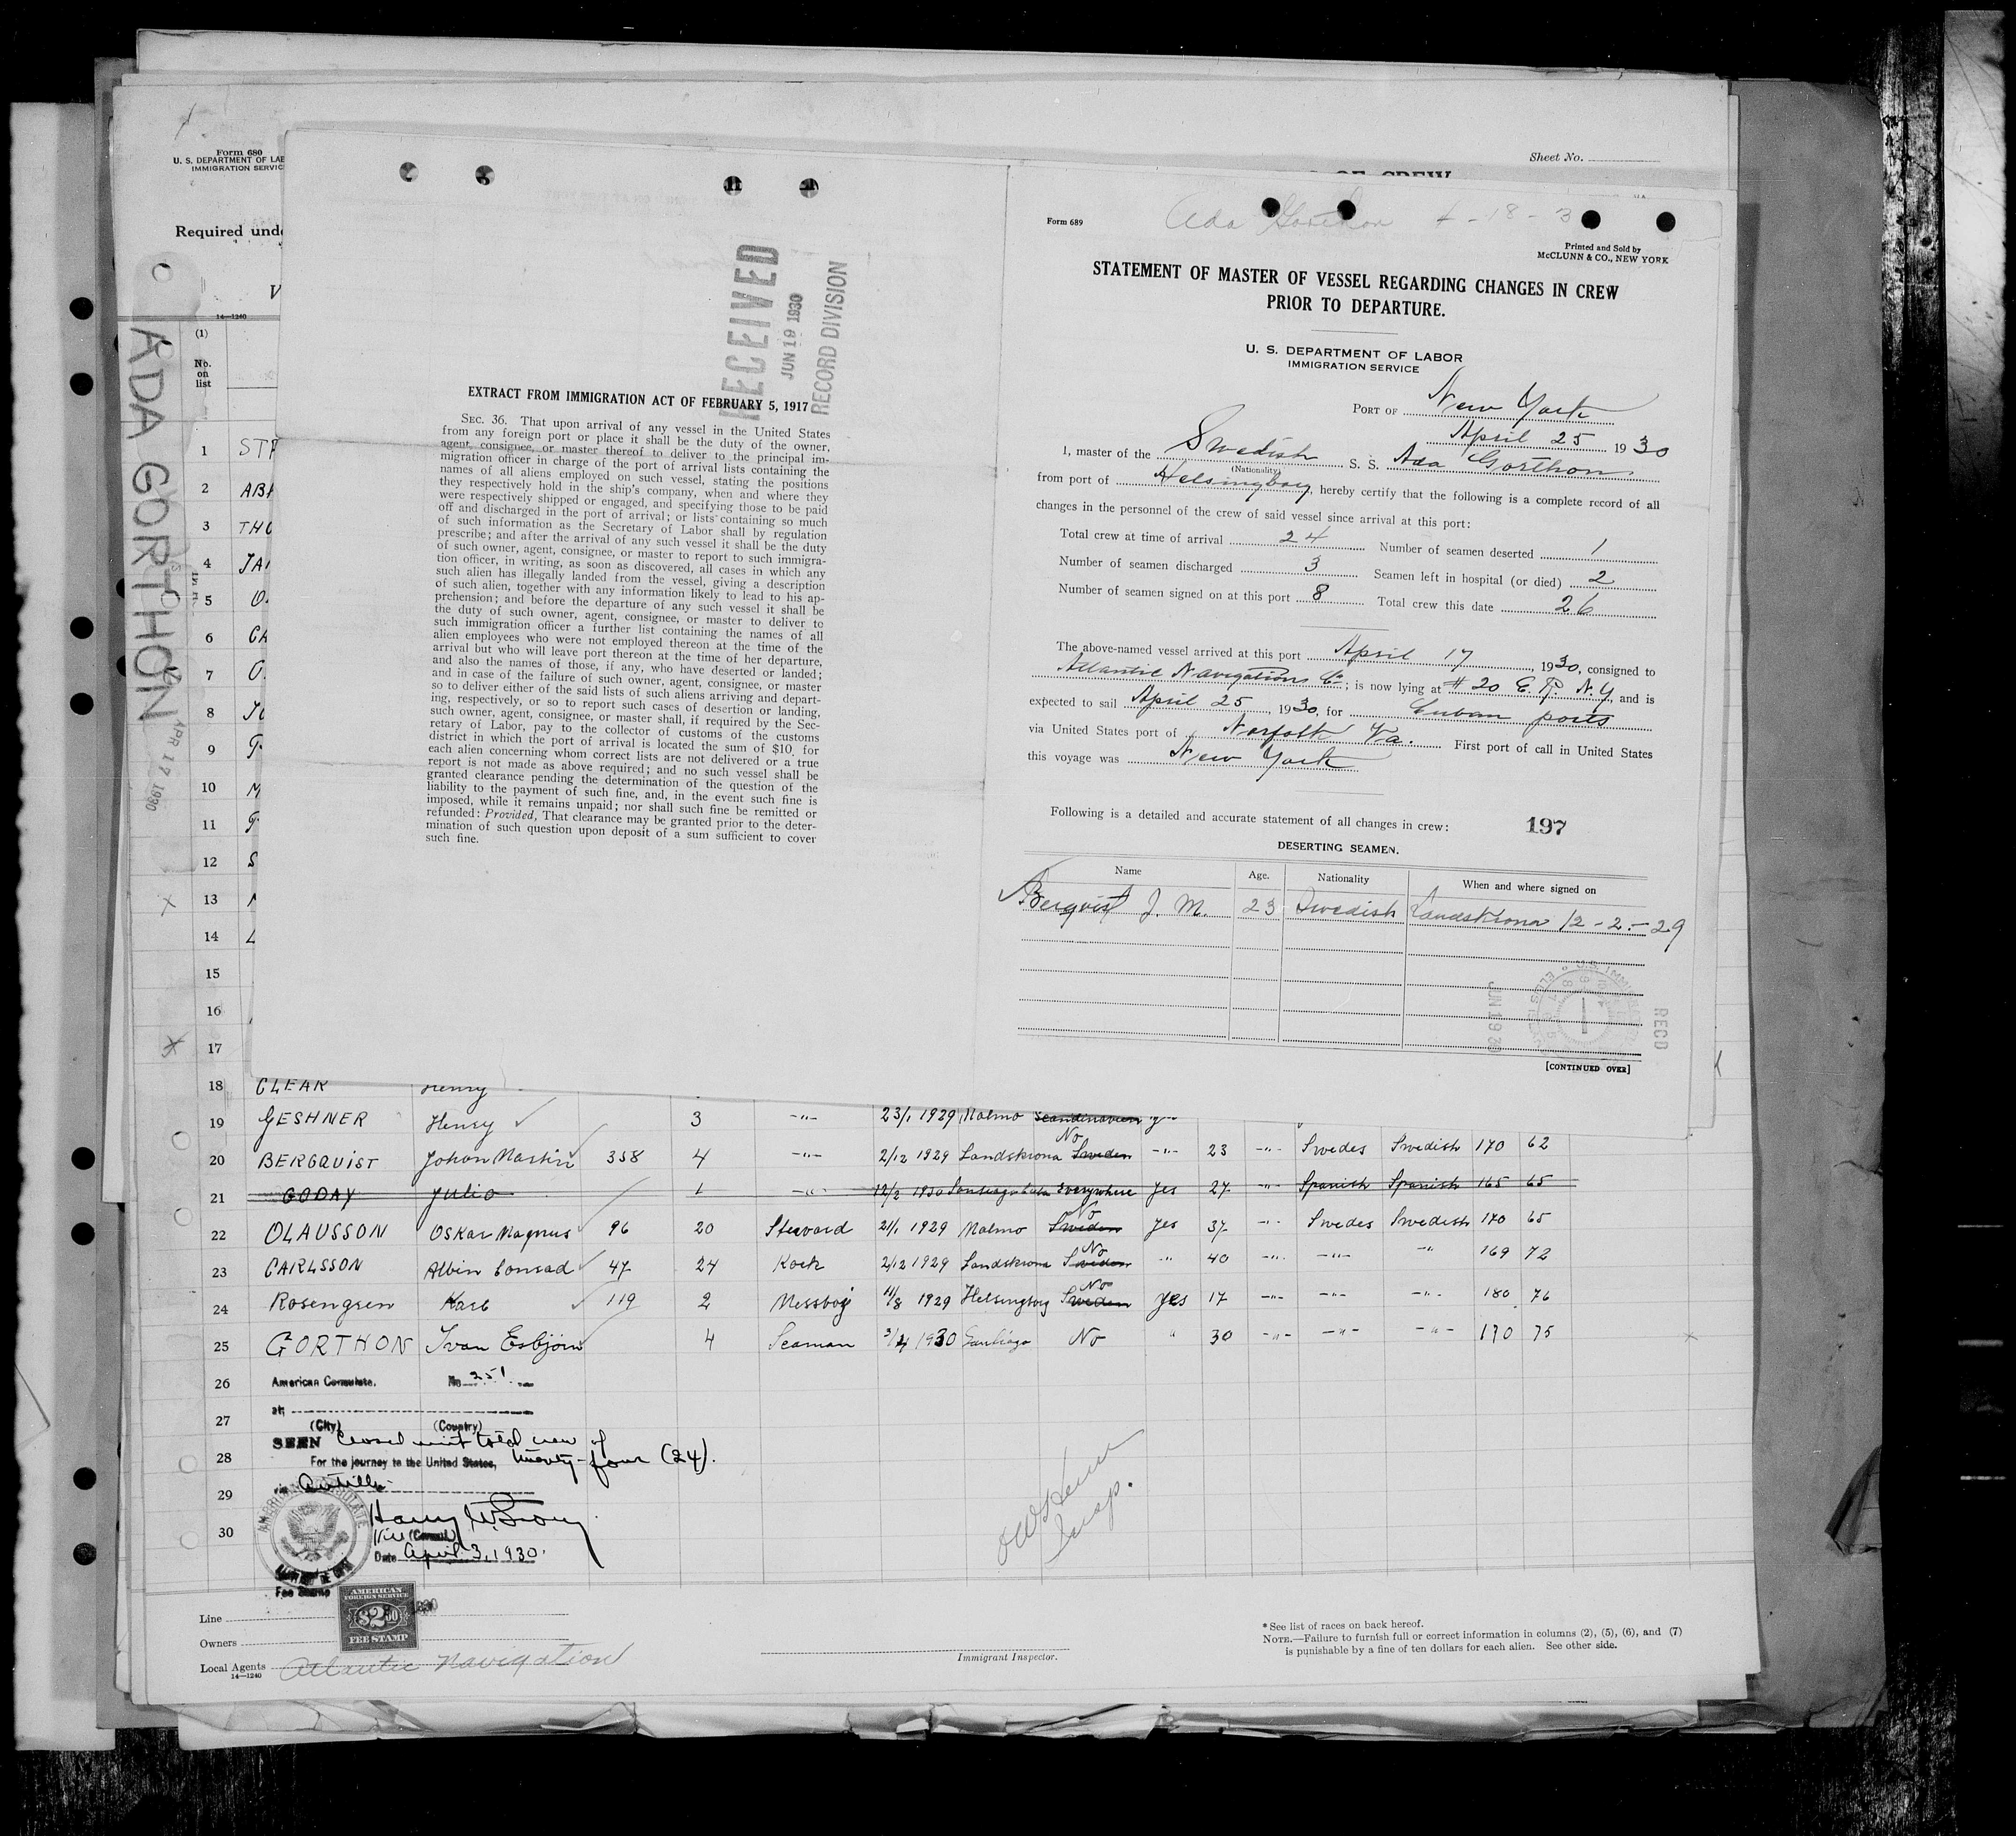 Form 680
U. S. DEPARTMENT OF LAB
IMMIGRATION SERVIC
Sheet No.
OF CREW
Required und
V
14—1240
(1)
No.
on
list
ADA GORTHON
APR 17 1930
1 STR
2 ABR
3 THO
4 JAN
5 O.
6 CA
7 O.
8 JO
9
10 M
11
12 S
13
14 L
15
16
17
RECEIVED
JUN 19 1930
RECORD DIVISION
EXTRACT FROM IMMIGRATION ACT OF FEBRUARY 5, 1917
SEC. 36. That upon arrival of any vessel in the United States
from any foreign port or place it shall be the duty of the owner,
agent, consignee, or master thereof to deliver to the principal im-
migration officer in charge of the port of arrival lists containing the
names of all aliens employed on such vessel, stating the positions
they respectively hold in the ship's company, when and where they
were respectively shipped or engaged, and specifying those to be paid
off and discharged in the port of arrival; or lists containing so much
of such information as the Secretary of Labor shall by regulation
prescribe; and after the arrival of any such vessel it shall be the duty
of such owner, agent, consignee, or master to report to such immigra-
tion officer, in writing, as soon as discovered, all cases in which any
such alien has illegally landed from the vessel, giving a description
of such alien, together with any information likely to lead to his ap-
prehension; and before the departure of any such vessel it shall be
the duty of such owner, agent, consignee, or master to deliver to
such immigration officer a further list containing the names of all
alien employees who were not employed thereon at the time of the
arrival but who will leave port thereon at the time of her departure,
and also the names of those, if any, who have deserted or landed;
and in case of the failure of such owner, agent, consignee, or master
so to deliver either of the said lists of such aliens arriving and depart-
ing, respectively, or so to report such cases of desertion or landing,
such owner, agent, consignee, or master shall, if required by the Sec-
retary of Labor, pay to the collector of customs of the customs
district in which the port of arrival is located the sum of $10 for
each alien concerning whom correct lists are not delivered or a true
report is not made as above required; and no such vessel shall be
granted clearance pending the determination of the question of the
liability to the payment of such fine, and, in the event such fine is
imposed, while it remains unpaid; nor shall such fine be remitted or
refunded: Provided, That clearance may be granted prior to the deter-
mination of such question upon deposit of a sum sufficient to cover
such fine.
Form 689
Ada Gorthon 4-18-3
Printed and Sold by
McCLUNN & CO., NEW YORK
STATEMENT OF MASTER OF VESSEL REGARDING CHANGES IN CREW
PRIOR TO DEPARTURE.
U. S. DEPARTMENT OF LABOR
IMMIGRATION SERVICE
PORT OF New York
April 25 1930
I, master of the Swedish S. S. Ada Gorthon
(Nationality)
from port of Helsingborg, hereby certify that the following is a complete record of all
changes in the personnel of the crew of said vessel since arrival at this port:
Total crew at time of arrival 24 Number of seamen deserted 1
Number of seamen discharged 3 Seamen left in hospital (or died) 2
Number of seamen signed on at this port 8 Total crew this date 26
The above-named vessel arrived at this port April 17, 1930, consigned to
Atlantic Navigation Co; is now lying at # 20 E. R. N.Y, and is
expected to sail April 25, 1930, for Cuban ports
via United States port of Norfolk Va. First port of call in United States
this voyage was New York
Following is a detailed and accurate statement of all changes in crew: 197
DESERTING SEAMEN.
Name Age. Nationality When and where signed on
Berqvist J. M. 23 Swedish Landskrona 12-2.-29
JUN 1930
RECD
[CONTINUED OVER]
18 CLEAR Henry
19 GESHNER Henry 3 -"- 23/1 1929 Malmo Scandinavien
20 BERGQUIST Johan Martin 358 4 -"- 2/12 1929 Landskrona Sweden No -"- 23 -"- Swedes Swedish 170 62
21 GODAY Julio 1 -"- 12/2 1930 Santiago Cuba Everywhere yes 27 -"- Spanish Spanish 165 65
22 OLAUSSON Oskar Magnus 96 20 Steward 21/1 1929 Malmo Sweden No yes 37 -"- Swedes Swedish 170 65
23 CARLSSON Albin Conrad 47 24 Kock 2/12 1929 Landskrona Sweden No " 40 -"- -"- -"- 169 72
24 Rosengren Karl 119 2 Messboy 11/8 1929 Helsingborg Sweden No yes 17 -"- -"- -"- 180 76
25 GORTHON Ivan Esbjörn 4 Seaman 3/4 1930 Santiago No " 30 -"- -"- -"- 170 75
26 American Consulate. No 251
27 at
(City) (Country)
28 SEEN Closed with total crew of
For the journey to the United States, twenty-four (24).
29 via Antilla
30
Vice (Consul)
Date April 3, 1930.
Fee Stamp
AMERICAN
FOREIGN SERVICE
$2.00
FEE STAMP
1930
Insp.
Line
Owners
Local Agents Atlantic Navigation
14—1240
Immigrant Inspector.
* See list of races on back hereof.
NOTE.—Failure to furnish full or correct information in columns (2), (5), (6), and (7)
is punishable by a fine of ten dollars for each alien. See other side.